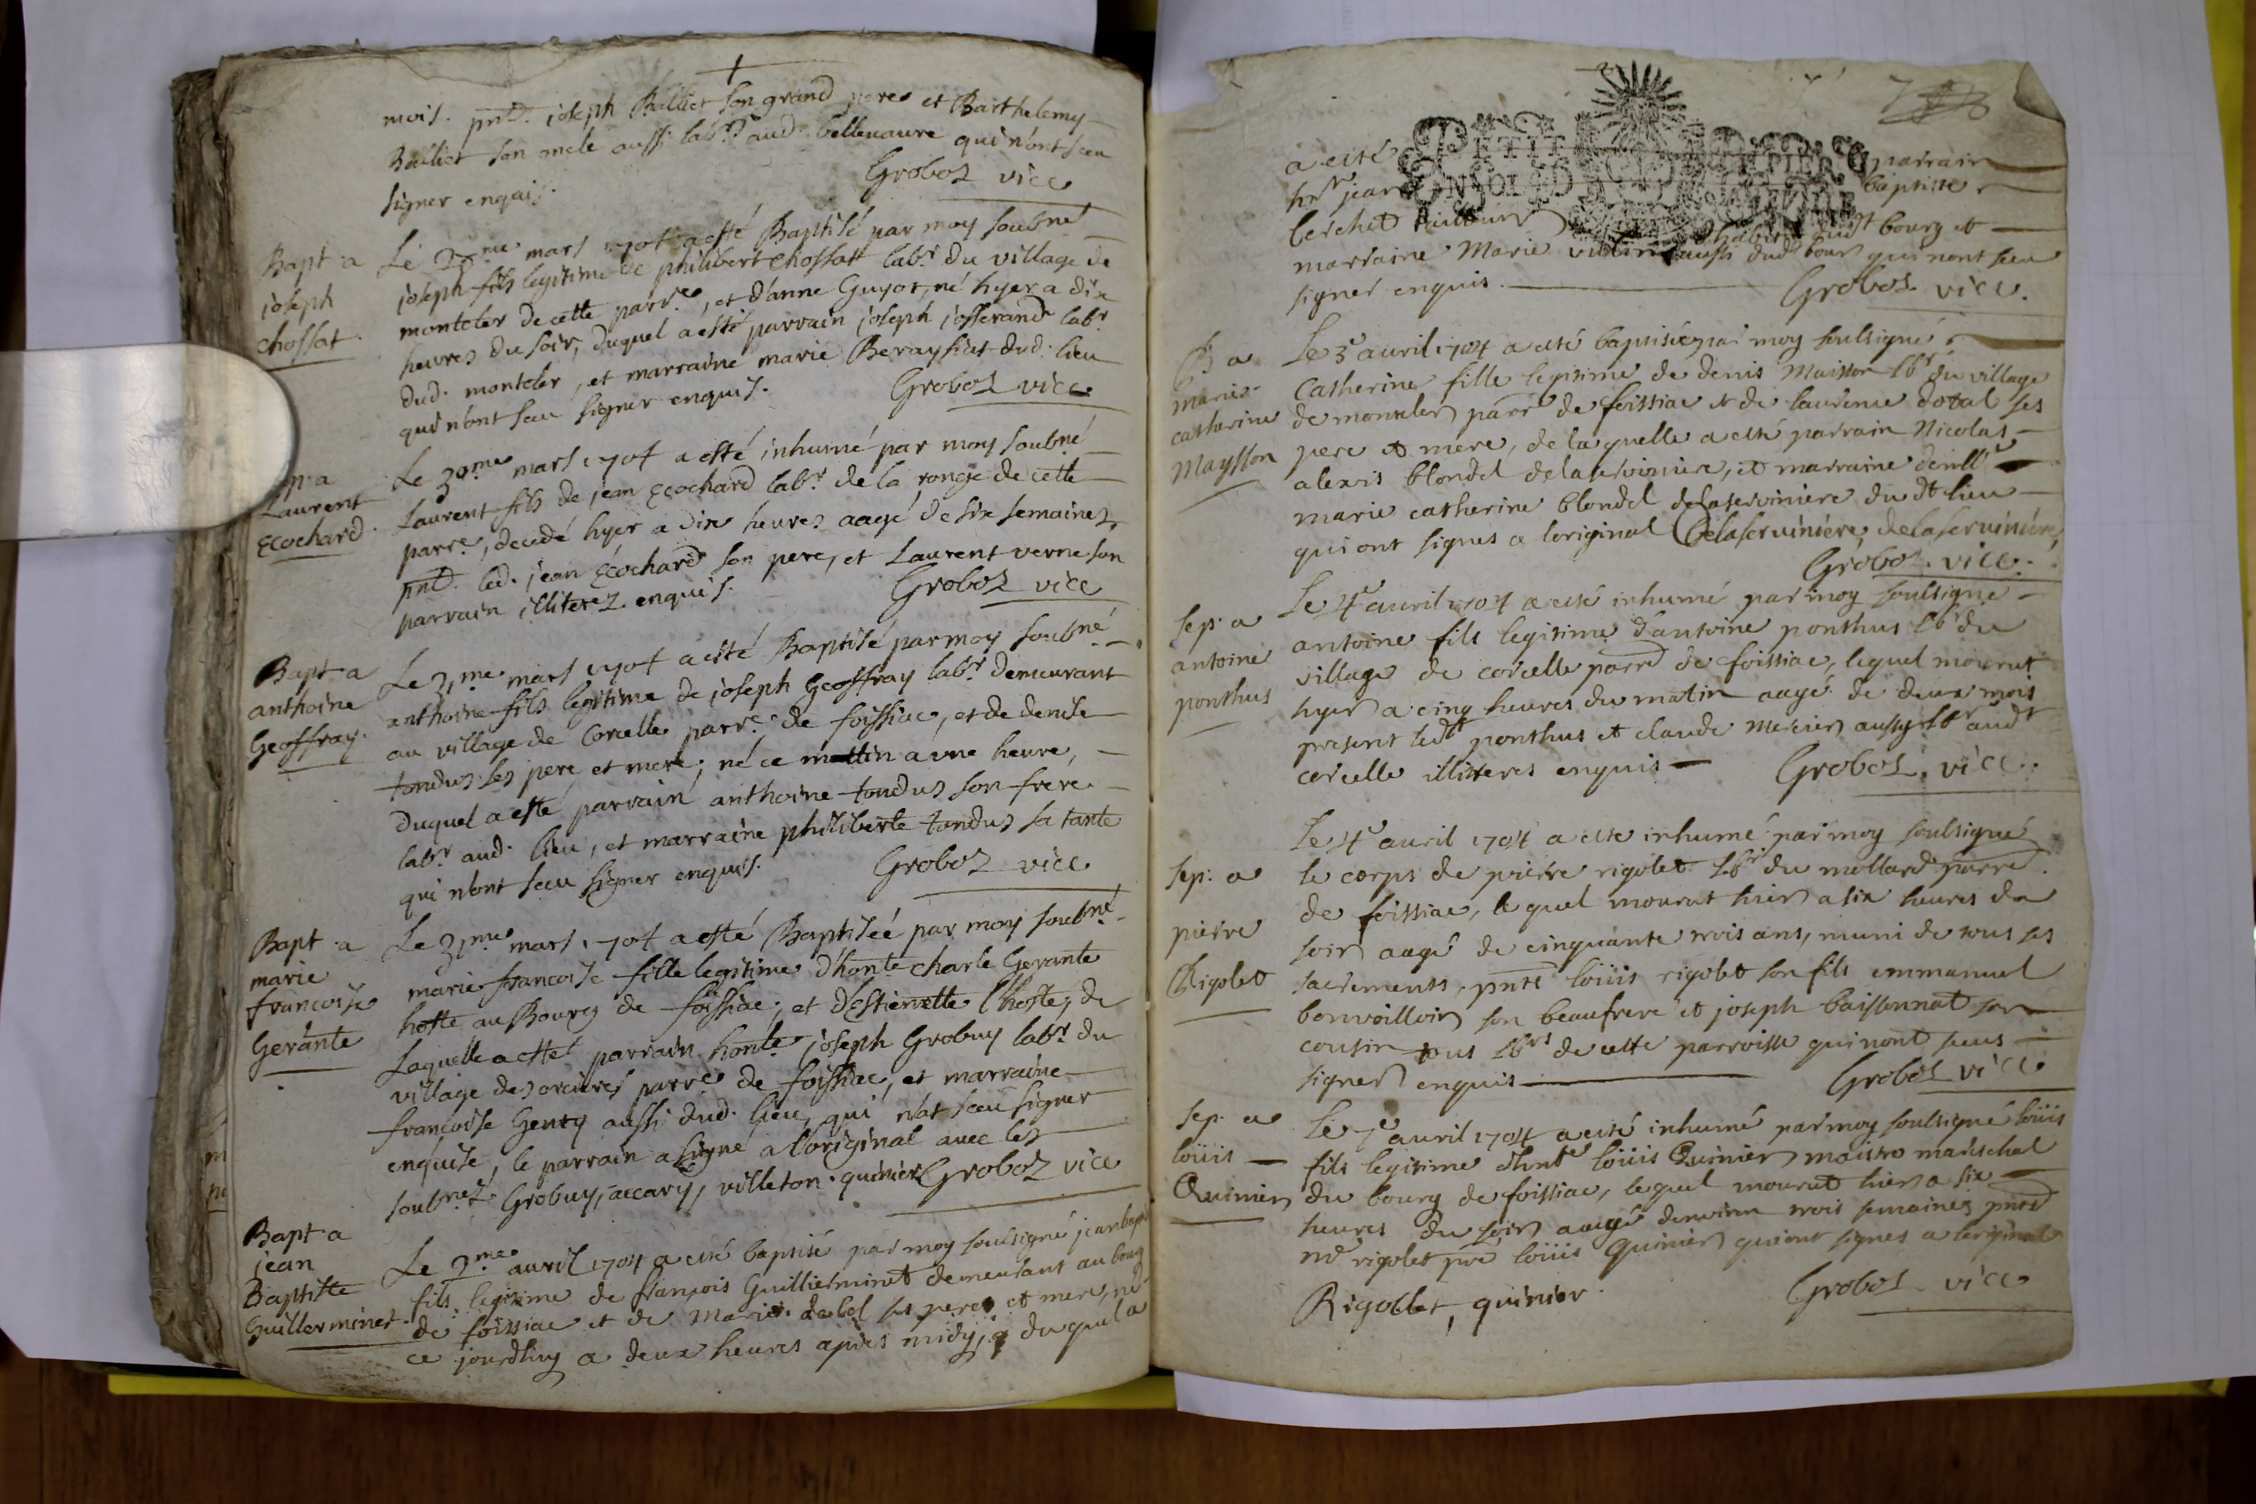 mois. pnt. joseph Balliet son grand pere et Barthelemy
Balliet son oncle aussi labr. aud. bellevavre qui n'ont sceu
signer enquis.
Groboz vice
Bapt. a
joseph
chossat.
Le 28me mars 1704 a esté Baptisé par moy soubné
joseph fils legitime de philibert chossat labr. du village de
montcler de cette parre, et d'anne Guyot, né hyer a dix
heures du soir, duquel a esté parrain joseph josserand labr.
dud. montcler, et marraine marie Berayssiat dud. lieu
qui n'ont sceu signer enquis.
Groboz vice
Laurent
Ecochard.
Le 30me mars 1704 a esté inhumé par moy soubné
Laurent fils de jean Ecochard labr. de la ronge de cette
parre, decedé hyer a dix heures aagé de six semaines,
pnt. led. jean Ecochard son pere, et Laurent verne son
parrain illiterez enquis.
Groboz vice
Bapt. a
anthoine
Geoffray.
Le 31me mars 1704 a esté Baptisé par moy soubné
anthoine fils legitime de joseph Geoffray labr. demeurant
au village de Corcelle parre de foissiac, et de denise
tondus ses pere et mere, né ce mattin a une heure,
duquel a esté parrain anthoine tonduz son frere
labr. aud. lieu, et marraine philiberte tonduz sa tante
qui n'ont sceu signer enquis.
Groboz vice
Bapt. a
marie
francoise
Gerante
Le 31me mars 1704 a esté Baptiseé par moy soubné
marie francoise fille legitime d'honte charle Gerante
hoste au Bourg de foissiac, et d'Estiennette l'hoste, de
Laquelle a esté parrain honte joseph Grobuy labr. du
village des orcieres parre de foissiac, et marraine
francoise Genty aussi dud. lieu, qui n'at sceu signer
enquise, le parrain a signé a l'original avec les
soubnez Grobuy, accary, villeton. quinier Groboz vice
Bapt. a
jean
Baptiste
Guillerminet.
Le 2me avril 1704 a esté baptisé par moy soulsigné jean bapte
fils legitime de françois Guillierminet demeurant au bourg
de foissiac et de Marie debel ses pere et mere, né
ce jourdhuy a deux heures apres midy, du quel a
a esté parrain
hr jean baptiste
berchet
PETIT PAPIER
marraine Marie aussi dud bourg qui nont sceu
signer enquis.
Groboz vice.
B. a
marie
catherine
Maysson
Le 3e avril 1704 a esté baptisée par moy soulsigné
Catherine fille legitime de denis Maisson lbr du village
de moncler parre de foissiac et de laurence doval ses
pere et mere, de laquelle a esté parrain Nicolas
alexis blondel delaserviniere, et marraine demlle
marie catherine blondel delaserviniere du dt lieu
qui ont signes a loriginal Delaserviniere delaserviniere
Groboz. vice.
sep. a
antoine
ponthus
Le 4e avril 1704 a esté inhumé par moy soulsigné
antoine fils legitime d'antoine ponthus lbr du
village de corcelle parre de foissiac, lequel mourut
hyer a cinq heures du matin aagé de deux mois
present ledt ponthus et claude Mercier aussy lbr audt
corcelle illitteres enquis
Groboz. vice.
sep. a
pierre
Rigolet
Le 4e avril 1704 a esté inhumé par moy soulsigné
le corps de pierre rigolet lbr du mollard parre
de foissiac, lequel mourut hier a six heures du
soir aagé de cinquante trois ans, muni de tous ses
sacrements, pnts loüis rigolet son fils emmanuel
bonvoilloir son beaufrere et joseph baissonnat son
cousin tous lbrs de cette parroisse qui nont sceus
signer enquis
Groboz vice
sep. a
loüis
Quinier
Le 7e avril 1704 a esté inhumé par moy soulsigné loüis
fils legitime d'hnte loüis Quinier maistre marischal
du bourg de foissiac, lequel mourut hier a six
heures du soir aagé denviron trois semaines pnts
mr rigolet pre loüis Quinier qui ont signes a loriginal
Rigollet, quinier.
Groboz. vice